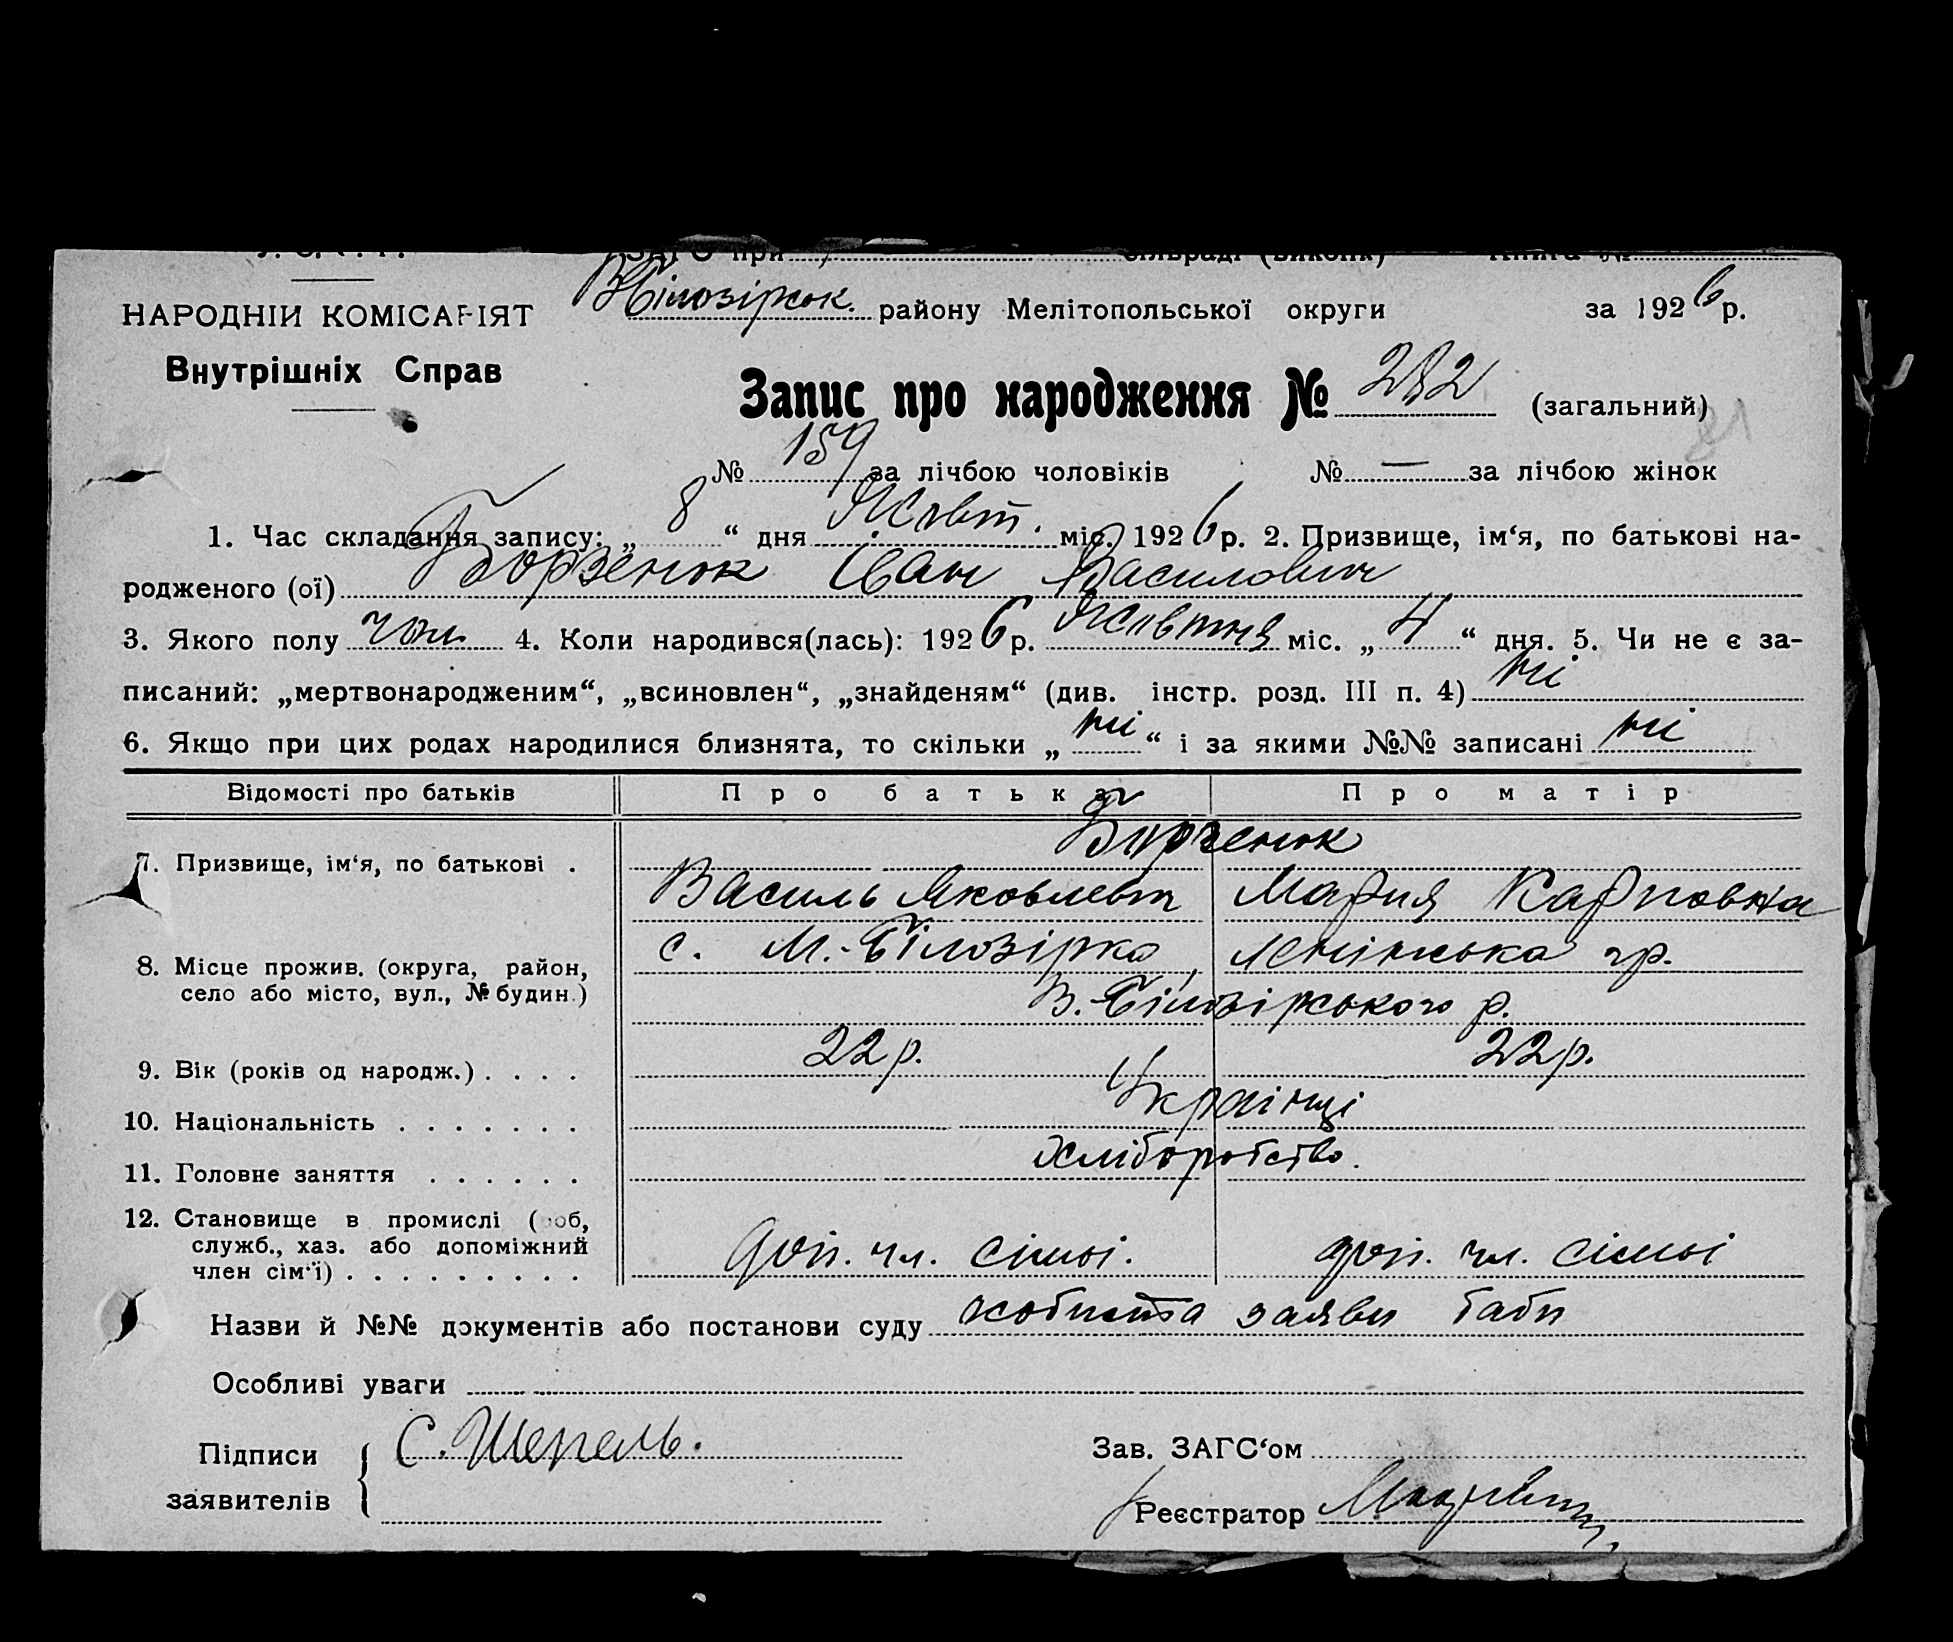 ЗАГС при сільраді (виконк) Книга №
НАРОДНІЙ КОМІСАРІЯТ В-Білозірськ. району Мелітопольської округи за 1926 р.
Внутрішніх Справ
Запис про народження № 282 (загальний)
81
№ 159 за лічбою чоловіків № — за лічбою жінок
1. Час складання запису: „ 8 “ дня Жовт. міс. 1926 р. 2. Призвище, ім‘я, по батькові на-
родженого (ої) Борзенюк Іван Василович
3. Якого полу чол. 4. Коли народився(лась): 1926 р. Жовтня міс. „ 4 “ дня. 5. Чи не є за-
писаний: „мертвонародженим“, „всиновлен“, „знайденям“ (див. інстр. розд. III п. 4) ні
6. Якщо при цих родах народилися близнята, то скільки „ ні “ і за якими №№ записані ні
Відомості про батьків Про батька Про матір
7. Призвище, ім‘я, по батькові . Борзенюк
Василь Яковлевич Мария Карповна
8. Місце прожив. (округа, район, с. М.-Білозірка, Ленінська гр.
село або місто, вул., № будин.) В.-Білозірського р.
9. Вік (років од народж.) . . . . 22 р. 22 р.
10. Національність . . . . . . . Українці
11. Головне заняття . . . . . . Хліборобство.
12. Становище в промислі (роб,
служб., хаз. або допоміжний доп. чл. сімьі. доп. чл. сімьі
член сім‘ї) . . . . . . . . .
Назви й №№ документів або постанови суду особиста заяви баби
Особливі уваги
Підписи С. Шепель. Зав. ЗАГС‘ом
заявителів Реєстратор